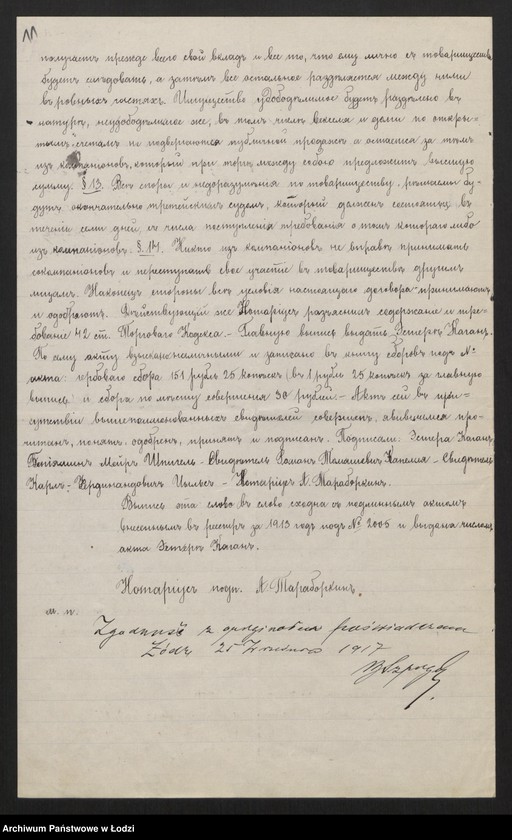 11
получаетъ прежде всего свой вкладъ и все то, что ему лично съ товарищества
будетъ слѣдовать, а затѣмъ все остальное раздѣляется между ними
въ ровныхъ частяхъ. Имущество удободѣлимое будетъ раздѣлено въ
натурѣ, неудободѣлимое же, въ томъ числѣ векселя и долги по откры-
тымъ счетамъ не подвергаются публичной продажѣ а остается за тѣмъ
изъ компаніоновъ, который при торгѣ между собою предложитъ высшую
сумму. § 13. Всѣ споры и недоразумѣнія по товариществу, рѣшаемы бу-
дутъ окончательно третейскимъ судомъ, который долженъ состояться въ
теченіи семи дней, съ числа поступленія требованія о томъ котораго либо
изъ компаніоновъ. § 14. Никто изъ компаніоновъ не вправѣ принимать
сокомпаніоновъ и переступать свое участіе въ товариществѣ другимъ
лицамъ. Наконецъ стороны всѣ условія настоящаго договора принимаютъ
и одобряютъ. Дѣйствующій же Нотаріусъ разъяснилъ содержаніе и тре-
бованіе 42 ст. Торговаго Кодекса. – Главную выпись выдать Эстерѣ Каганъ.
По сему акту взыскано наличными и записано въ книгу сборовъ подъ №
акта: гербоваго сбора 151 рубль 25 копѣекъ (въ 1 рубль 25 копѣекъ за главную
выпись) и сбора по мѣсту совершенія 30 рублей. – Актъ сей въ при-
сутствіи вышепоименованныхъ свидѣтелей совершенъ, явившимся про-
читанъ, понятъ, одобренъ, принятъ и подписанъ. Подписали: Эстера Каганъ,
Беніаминъ Майръ Шпигель – Свидѣтель Романъ Томашевичъ Капелла – Свидѣтель
Карлъ Фердинандовичъ Цыльсъ – Нотаріусъ А. Тараборкинъ.
Выпись эта слово въ слово сходна съ подлиннымъ актомъ
внесеннымъ въ реестръ за 1913 годъ подъ № 2005 и выдана числомъ
акта Эстерѣ Каганъ.
Нотаріусъ подп. А. Тараборкинъ.
м. п.
Zgodność z oryginałem poświadczam
Łódź 25 Września 1917